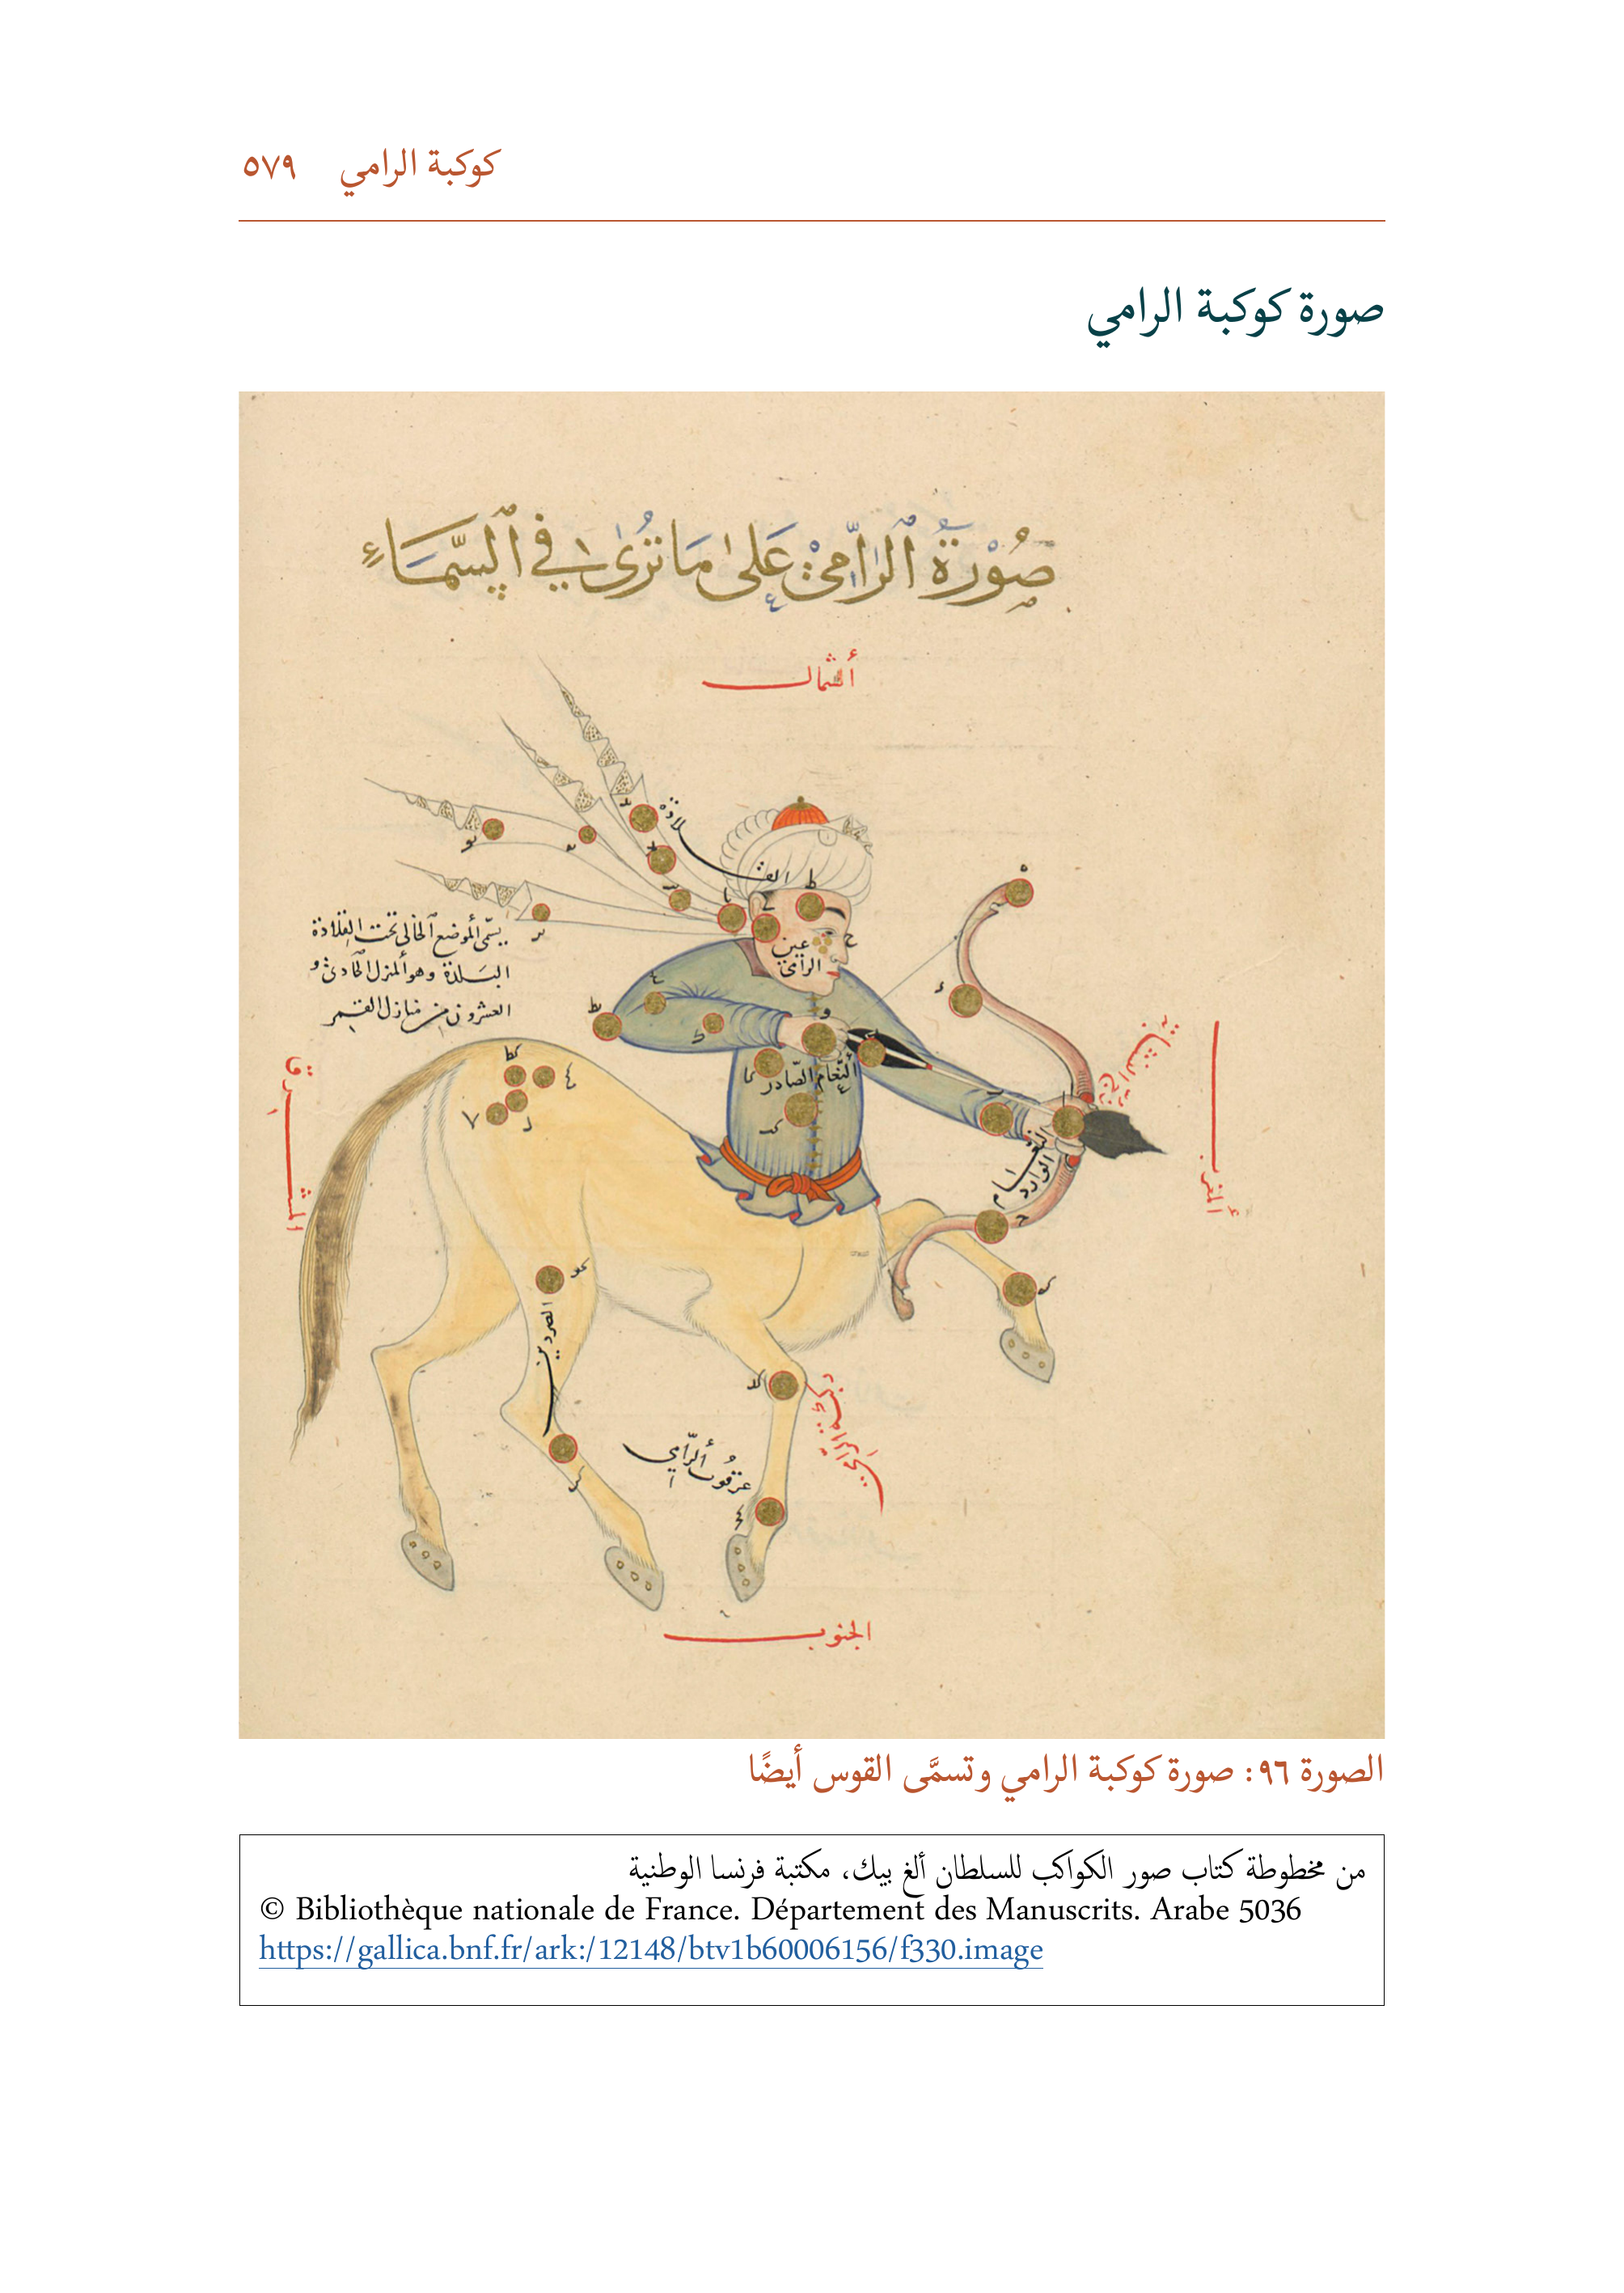 كوكبة الرامي ٥٧٩
صورة كوكبة الرامي
صُوْرَةُ الرَّامِيْ عَلىٰ مَا تُرىٰ فِي السَّمَاءِ
الشمال
القلادة
عين
الرامي
يسمّى الموضع الخالي تحت القلادة
البلدة وهو المنزل الحادي و
العشرون من منازل القمر
النّعام الصّادر
النعام
الوارد
المشرق
المغرب
الصردين
عرقوب الرّامي
ركبة الرامي
الجنوب
الصورة ٩٦: صورة كوكبة الرامي وتسمَّى القوس أيضًا
من مخطوطة كتاب صور الكواكب للسلطان ألغ بيك، مكتبة فرنسا الوطنية
© Bibliothèque nationale de France. Département des Manuscrits. Arabe 5036
https://gallica.bnf.fr/ark:/12148/btv1b60006156/f330.image